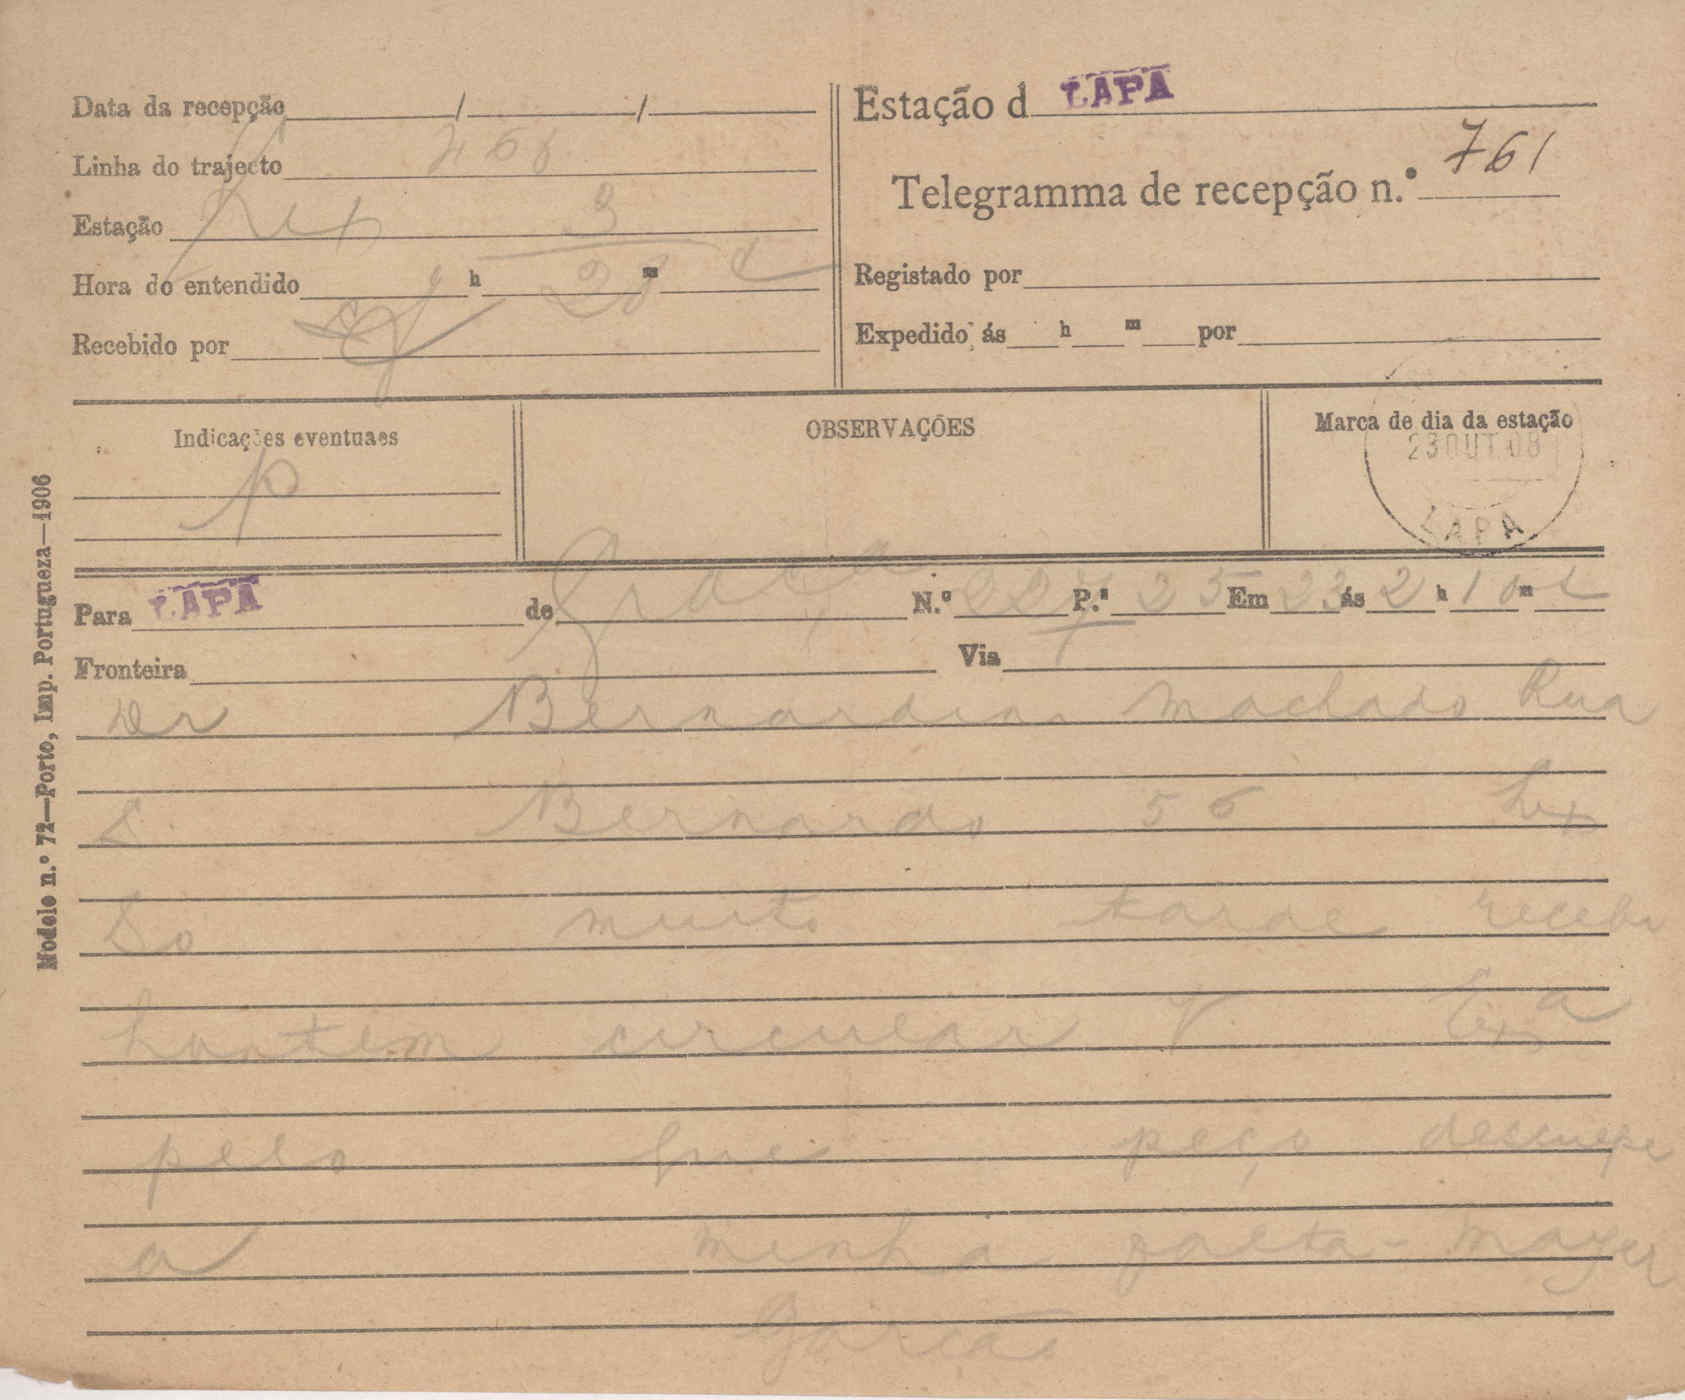 Data da recepção / /
Linha do trajecto 466
Estação Lx 3
Hora do entendido h 28 m
Recebido por
Estação d LAPA
Telegramma de recepção n.º 761
Registado por
Expedido ás h m por
Indicações eventuaes
p
OBSERVAÇÕES
Marca de dia da estação
23 OUT. 08
LAPA
Modelo n.º 72—Porto, Imp. Portugueza—1906
Para LAPA de Graça N.º 227 P.ª 25 Em 23 ás 2 h 10 m t
Fronteira Via
Dr Bernardino Machado Rua
S. Bernardo 56 Lx
So muito tarde recebi
hontem circular V Exa
pelo que peço desculpe
a minha falta - Mayer
Garcão